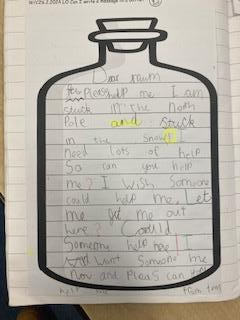 2.2024 LO Can I write a message in a bottle
Dear mum
Please help me I am
stuck in the north
Pole and stuck
in the Snow I
need lots of help
So can you help
me? I wish Someone
could help me. Let
me me out
here? Could
Someone help me! I
want Someone me
Now and Pleas can
help me from